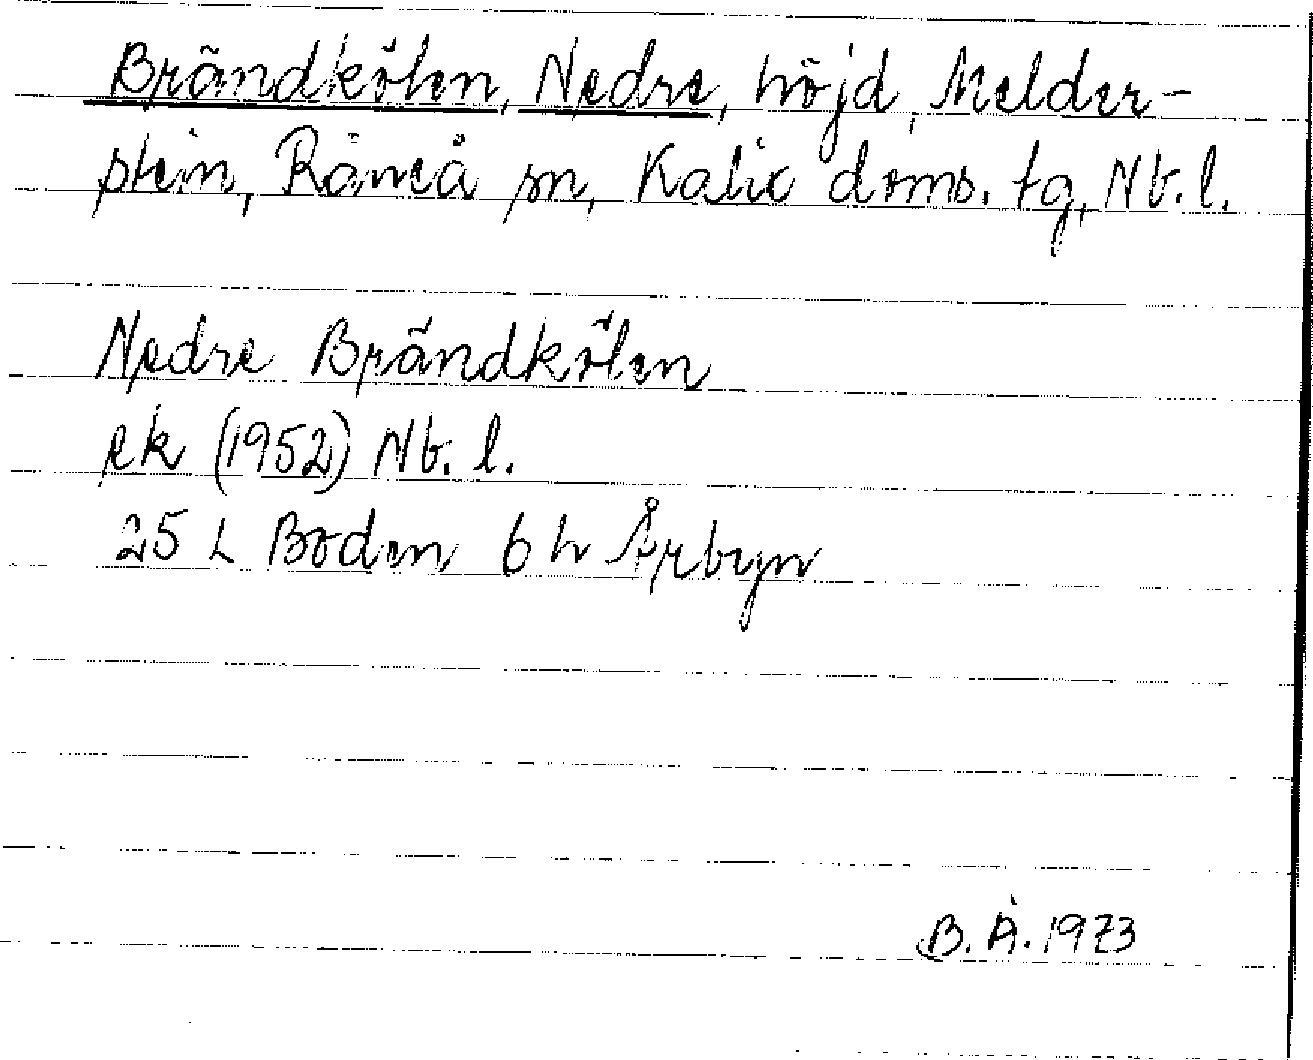 Brändkölen, Nedre, höjd, Melder-
stein, Råneå sn, Kalix doms. tg, Nb. l.
Nedre Brändkölen
ek (1952) Nb. l.
25 L Boden 6 h Orrbyn
B. Å. 1973